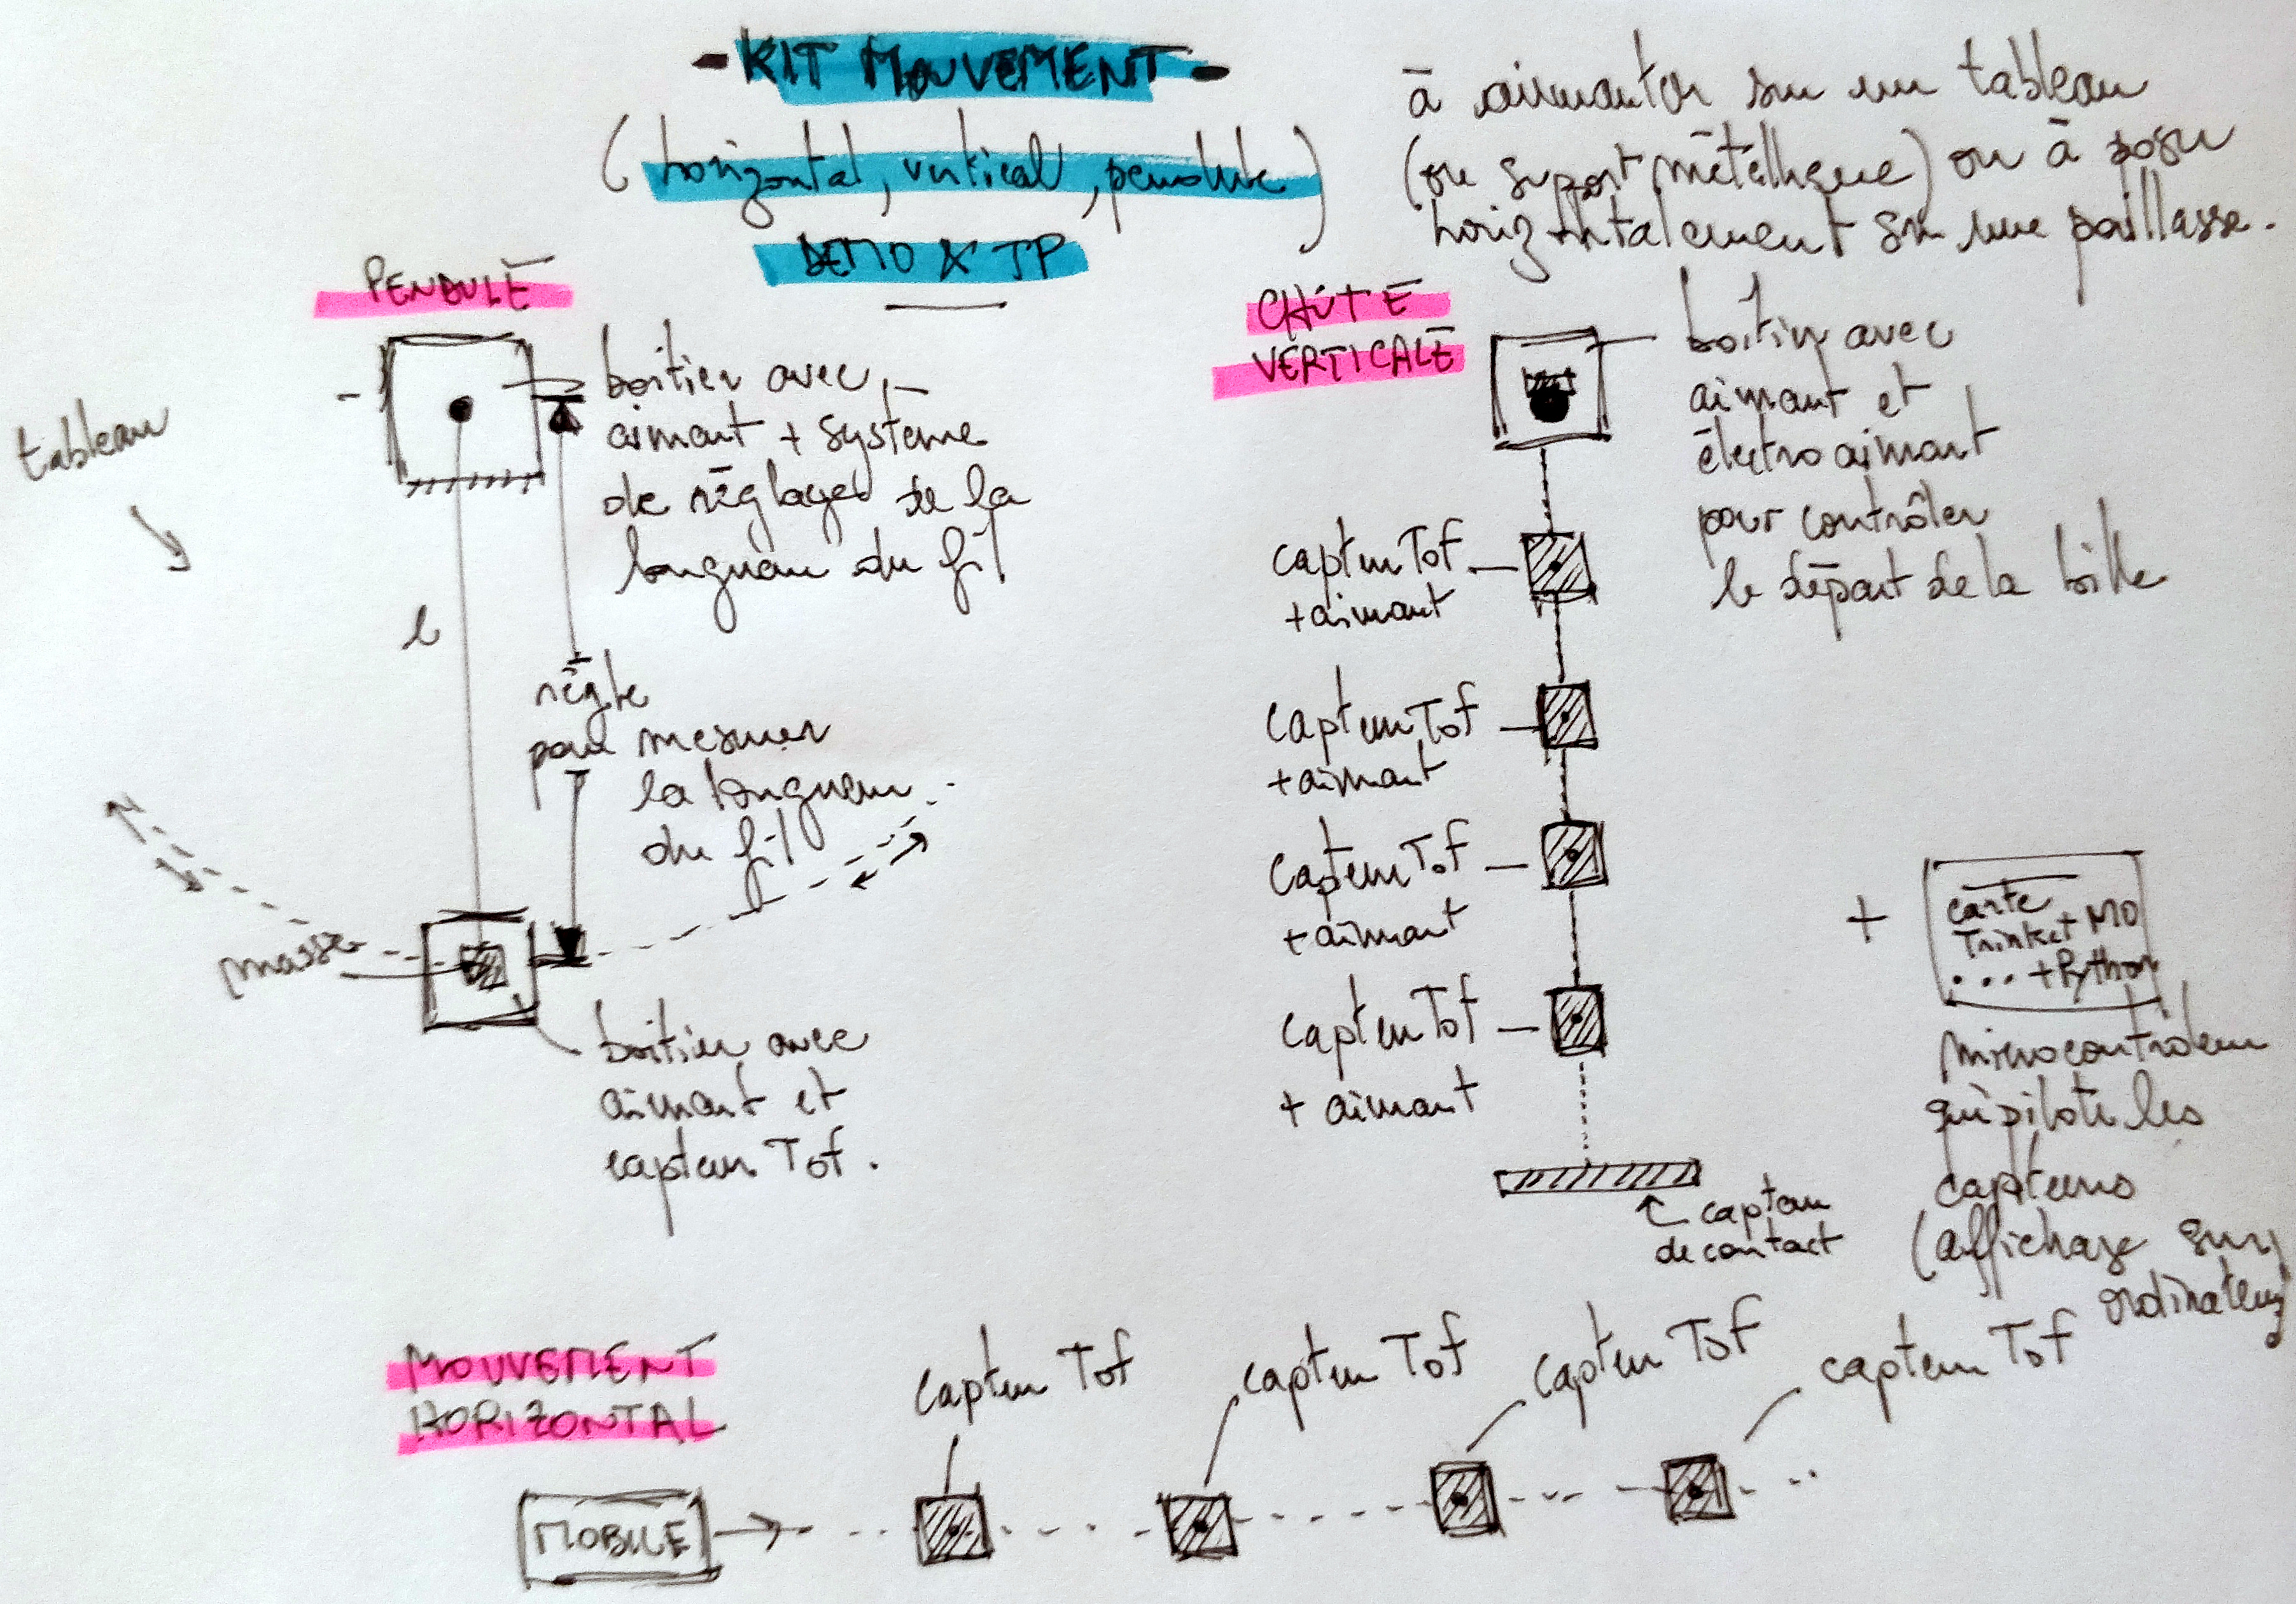 - KIT MOUVEMENT -
(horizontal, vertical, pendule)
DEMO & TP
à aimanter sur un tableau
(ou support métallique) ou à poser
horizontalement sur une paillasse.
PENDULE
tableau
boitier avec
aimant + système
de réglage de la
longueur du fil
l
règle
pour mesurer
la longueur
du fil
masse
boitier avec
aimant et
capteur Tof.
CHUTE
VERTICALE
boitier avec
aimant et
électroaimant
pour contrôler
le départ de la bille
capteur Tof
+ aimant
capteur Tof
+ aimant
capteur Tof
+ aimant
capteur Tof
+ aimant
capteur
de contact
+
carte
Trinket M0
... + Python
microcontrôleur
qui pilote les
capteurs
(affichage sur
ordinateur)
MOUVEMENT
HORIZONTAL
capteur Tof
capteur Tof
capteur Tof
capteur Tof
MOBILE